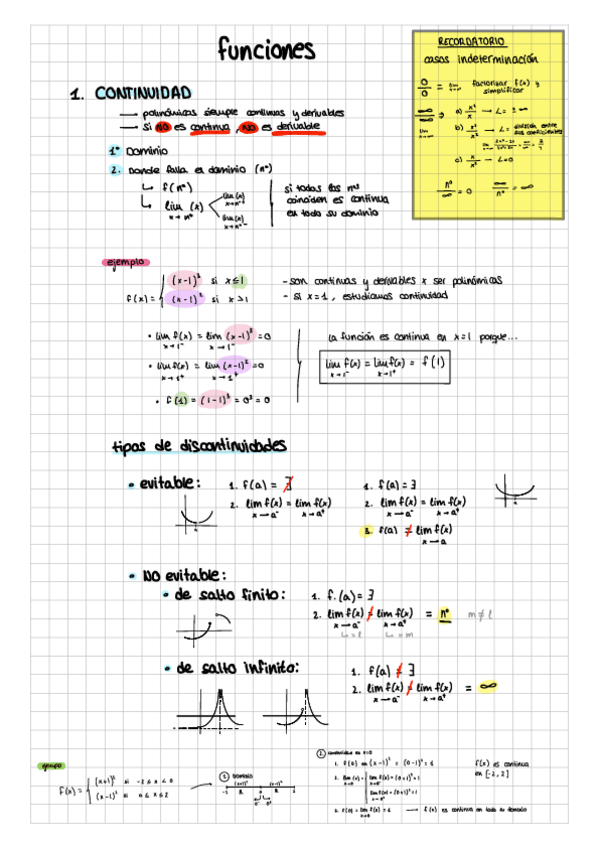 funciones
RECORDATORIO
casos indeterminación
0/0 = lim factorizar f(x) y
simplificar
∞/∞ ⇒ a) → L = ± ∞
b) x²/x² → L = división entre
sus coeficientes
c) → L=0
n°/∞ = 0 ∞/n° = ∞
1. CONTINUIDAD
→ polinómicas siempre continuas y derivables
→ si NO es continua, NO es derivable
1° Dominio
2. Donde falla el dominio (n°)
↳ f(n°)
↳ lim (x)
x→n°
lim(x)
x→n°⁺
lim(x)
x→n°⁻
si todos los nos
coinciden es continua
en todo su dominio
ejemplo
f(x) = { (x-1)³ si x≤1
(x-1)² si x>1
- son continuas y derivables x ser polinómicas
- si x=1, estudiamos continuidad
• lim f(x) = lim (x-1)³ = 0
x→1⁻ x→1⁻
• lim f(x) = lim (x-1)² = 0
x→1⁺ x→1⁺
• f(1) = (1-1)³ = 0³ = 0
la función es continua en x=1 porque...
lim f(x) = lim f(x) = f(1)
x→1⁻ x→1⁺
tipos de discontinuidades
• evitable:
1. f(a) = ∄
2. lim f(x) = lim f(x)
x→a⁻ x→a⁺
1. f(a) = ∃
2. lim f(x) = lim f(x)
x→a⁻ x→a⁺
3. f(a) ≠ lim f(x)
x→a
• NO evitable:
• de salto finito:
1. f.(a) = ∃
2. lim f(x) ≠ lim f(x) = n° m ≠ l
x→a⁻ x→a⁺
↳ = l ↳ = m
• de salto infinito:
1. f(a) ≠ ∃
2. lim f(x) ≠ lim f(x) = ∞
x→a⁻ x→a⁺
f(x) = { (x+1)² si -2≤x<0
(x-1)² si 0≤x≤2
① Dominio
② continuidad en x=0
1. f(0) en (x-1)² = (0-1)² = 1
2. lim f(x) = lim f(x) = (0+1)² = 1
3. f(0) = lim f(x) = 1 → f(x) es continua en todo su dominio
f(x) es continua
en [-2,2]